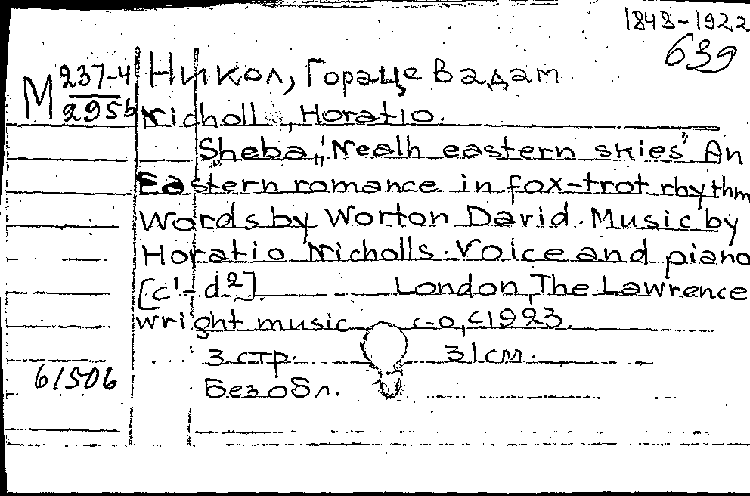 1848-1922
639
М 237-4
295б
Никол, Гораце Вадам
Nicholls, Horatio.
Sheba, "Neath eastern skies" An
Eastern romance in fox-trot rhythm
Words by Worton David. Music by
Horatio Nicholls. Voice and piano
[c¹-d²] London, The Lawrence
wright music c-o, c1923.
3 стр. 31 см.
61506
Без обл.